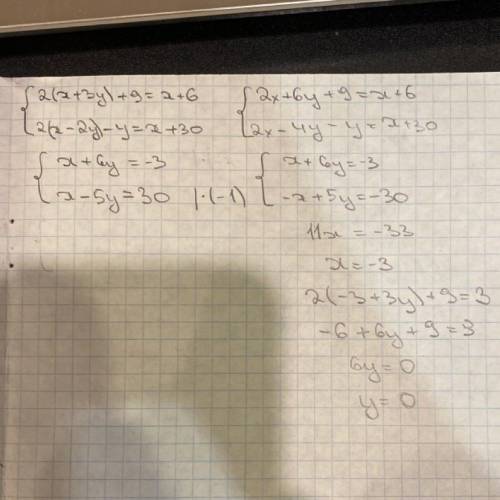 2(x+3y)+9=x+6
2(x-2y)-y=x+30
2x+6y+9=x+6
2x-4y-y=x+30
x+6y=-3
x-5y=30 |·(-1)
x+6y=-3
-x+5y=-30
11x=-33
x=-3
2(-3+3y)+9=3
-6+6y+9=3
6y=0
y=0